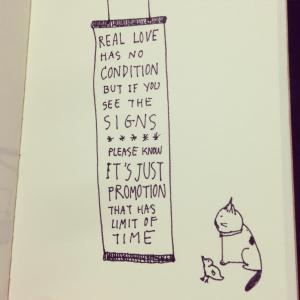 REAL LOVE
HAS NO
CONDITION
BUT IF YOU
SEE THE
SIGNS
* * * * *
PLEASE KNOW
IT'S JUST
PROMOTION
THAT HAS
LIMIT OF
TIME